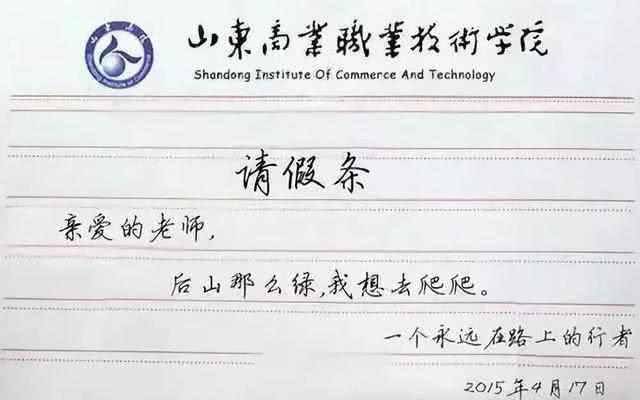 山东商院
Shandong Institute of Commerce
山東商業職業技術学院
Shandong Institute Of Commerce And Technology
请假条
亲爱的老师,
后山那么绿,我想去爬爬。
一个永远在路上的行者
2015年4月17日